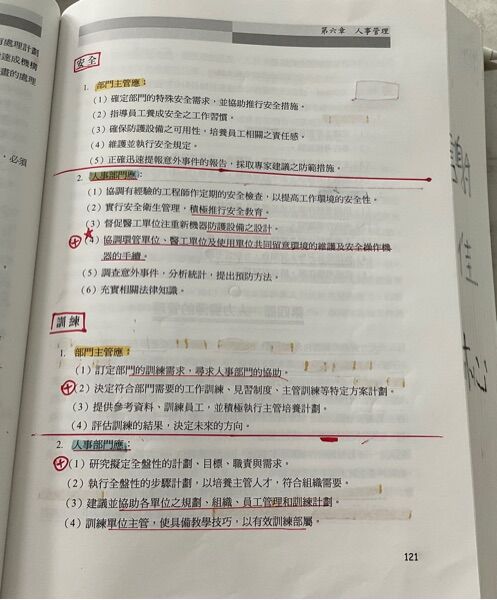 第六章　人事管理
有處理計劃
速成機構
畫的處理
必須
安全
1. 部門主管應：
(1) 確定部門的特殊安全需求，並協助推行安全措施。
(2) 指導員工養成安全之工作習慣。
(3) 確保防護設備之可用性，培養員工相關之責任感。
(4) 維護並執行安全規定。
(5) 正確迅速提報意外事件的報告，採取專家建議之防範措施。
2. 人事部門應：
(1) 協調有經驗的工程師作定期的安全檢查，以提高工作環境的安全性。
(2) 實行安全衛生管理，積極推行安全教育。
(3) 督促醫工單位注重新機器防護設備之設計。
(4) 協調環管單位、醫工單位及使用單位共同留意環境的維護及安全操作機
器的手續。
(5) 調查意外事件，分析統計，提出預防方法。
(6) 充實相關法律知識。
訓練
1. 部門主管應：
(1) 訂定部門的訓練需求，尋求人事部門的協助。
(2) 決定符合部門需要的工作訓練、見習制度、主管訓練等特定方案計劃。
(3) 提供參考資料、訓練員工，並積極執行主管培養計劃。
(4) 評估訓練的結果，決定未來的方向。
2. 人事部門應：
(1) 研究擬定全盤性的計劃、目標、職責與需求。
(2) 執行全盤性的步驟計劃，以培養主管人才，符合組織需要。
(3) 建議並協助各單位之規劃、組織、員工管理和訓練計劃。
(4) 訓練單位主管，使具備教學技巧，以有效訓練部屬。
121